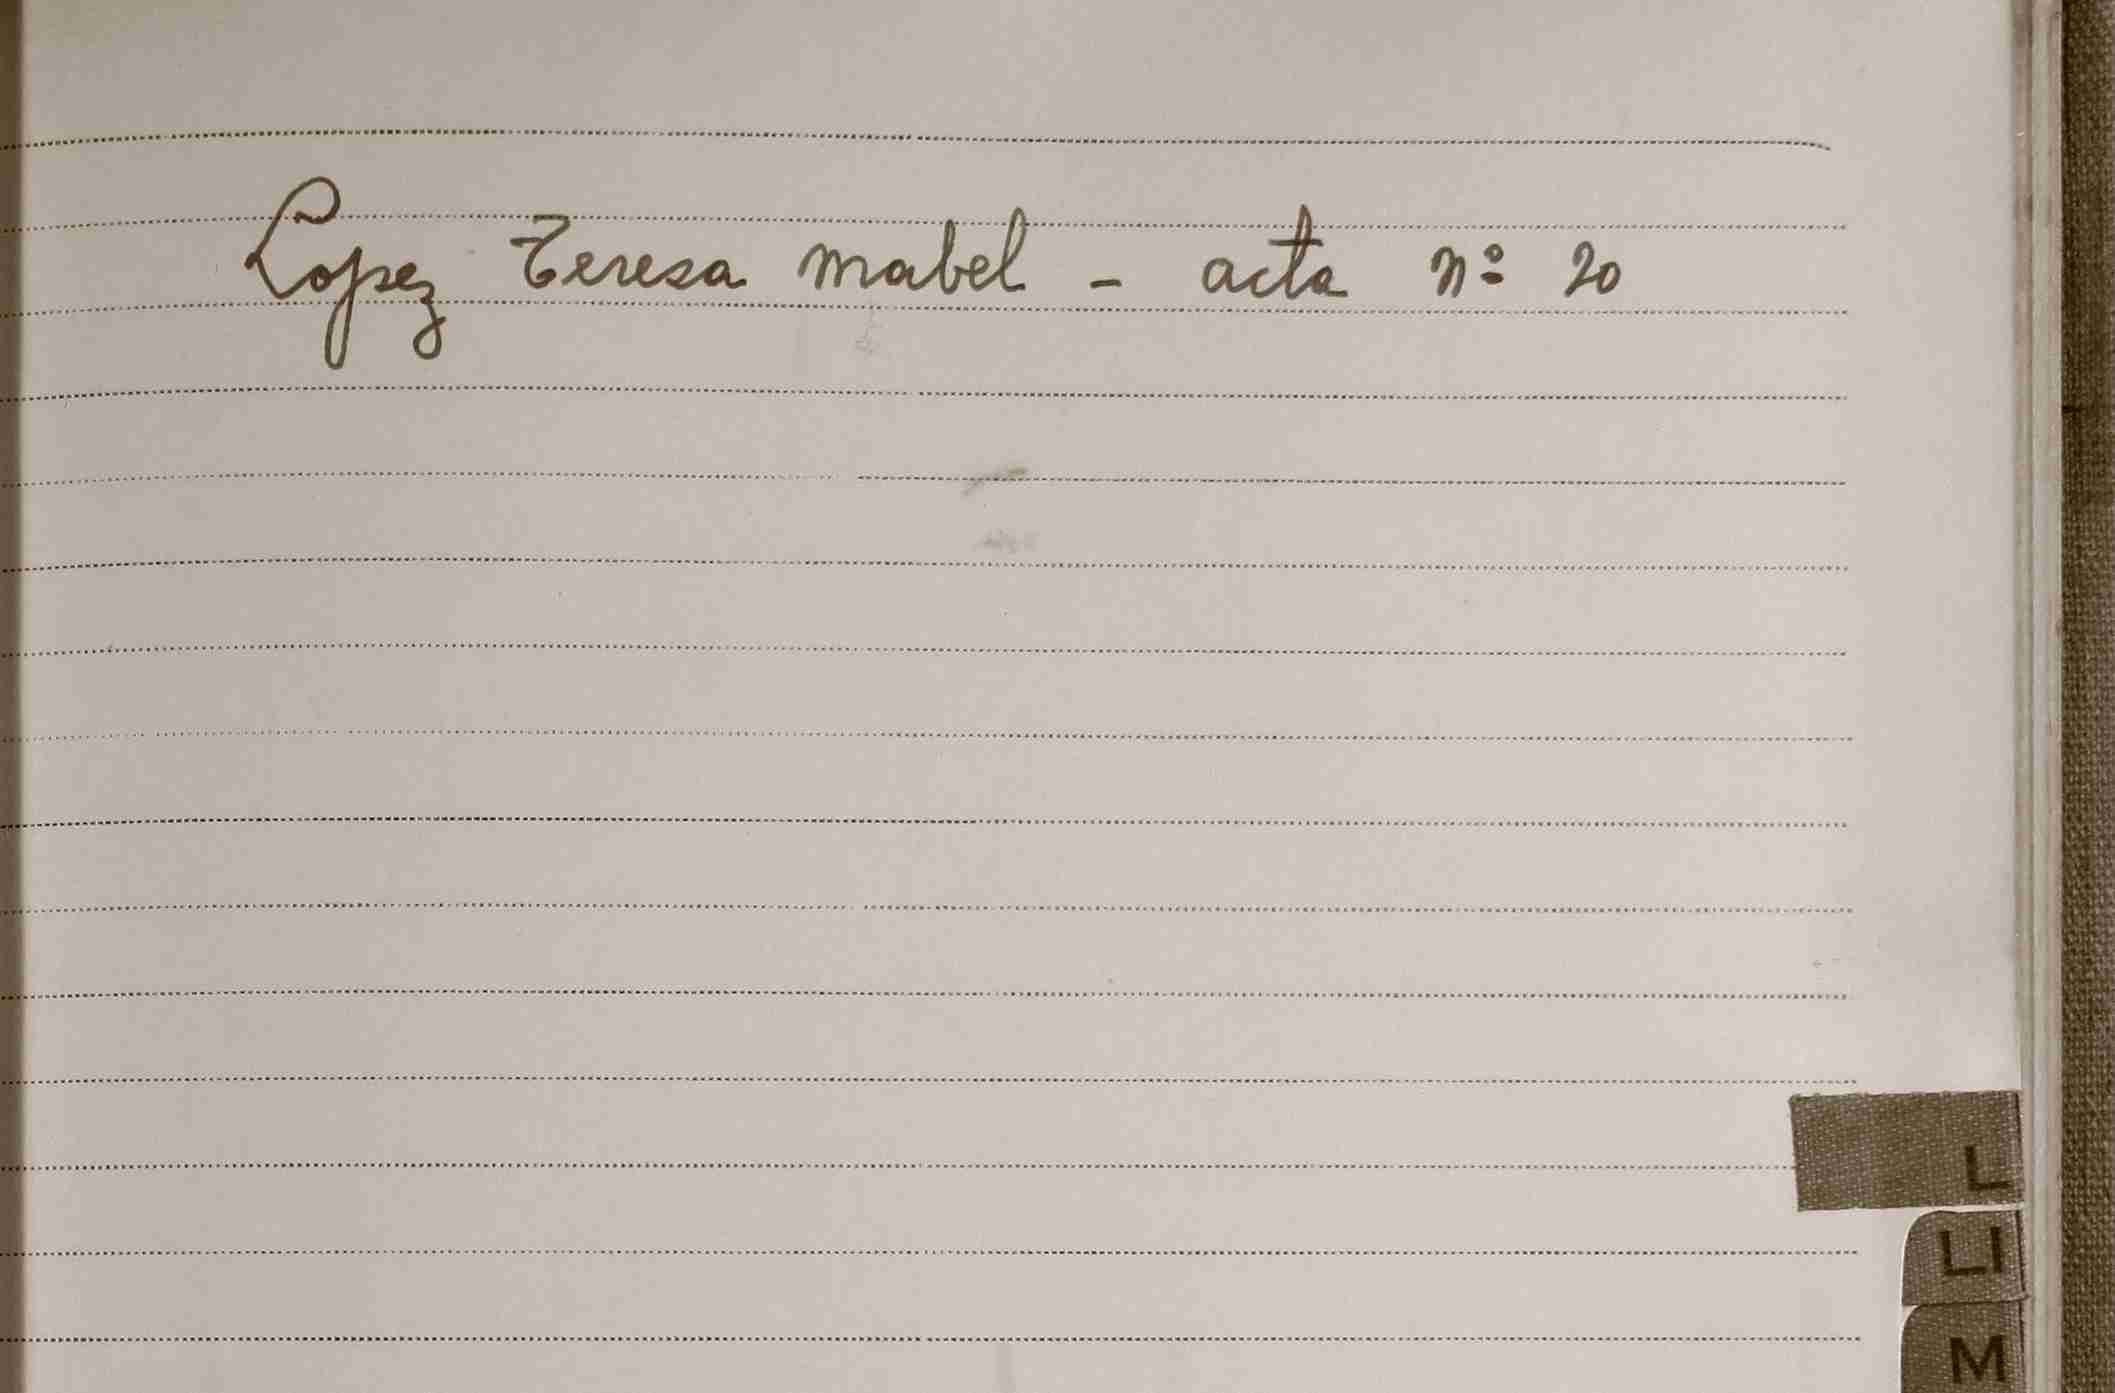 Lopez Teresa mabel - acta nº 20
L
Ll
M